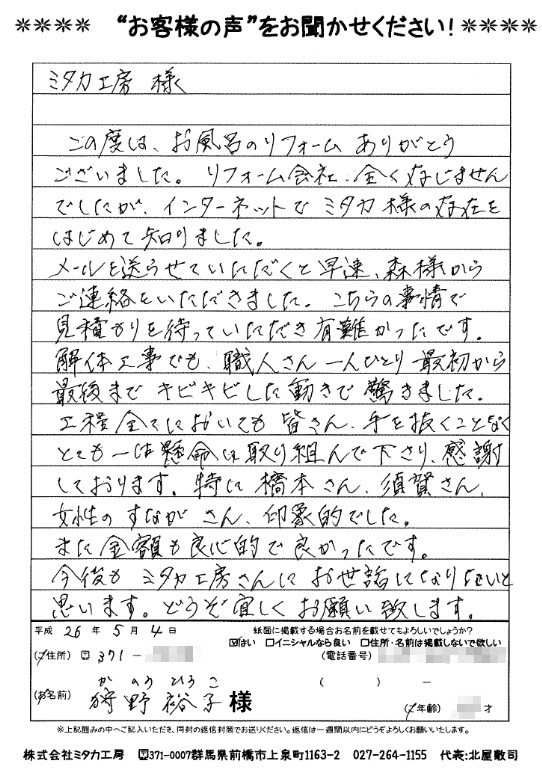 ＊＊＊＊ “お客様の声”をお聞かせください！＊＊＊＊
ミタカ工房 様
この度は、お風呂のリフォーム ありがとう
ございました。リフォーム会社、全く存じません
でしたが、インターネットで ミタカ様の存在を
はじめて知りました。
メールを送らせていただくと早速、森様から
ご連絡をいただきました。こちらの事情で
見積かりを待っていただき有難かったです。
解体工事でも、職人さん一人ひとり最初から
最後まで キビキビした動きで驚きました。
工程全てにおいても 皆さん、手を抜くことなく
とても一生懸命に取り組んで下さり、感謝
しております。特に 橋本さん、須賀さん、
女性の すなが さん、印象的でした。
また 金額も良心的で良かったです。
今後も ミタカ工房さんに お世話になりたいと
思います。どうぞ宜しく お願い致します。
平成 26 年 5 月 4 日
紙面に掲載する場合お名前を載せてもよろしいでしょうか？
☑はい □イニシャルなら良い □住所・名前は掲載しないで欲しい
(ご住所) 〒371-
(電話番号)
( ) -
かのう ひろこ
(お名前) 狩野 裕子 様
(ご年齢) 才
※上記囲みの中へご記入いただき、同封の返信封筒でお送りください。返信は一週間以内にどうぞよろしくお願いいたします。
株式会社ミタカ工房 〒371-0007群馬県前橋市上泉町1163-2 027-264-1155 代表:北屋敷司